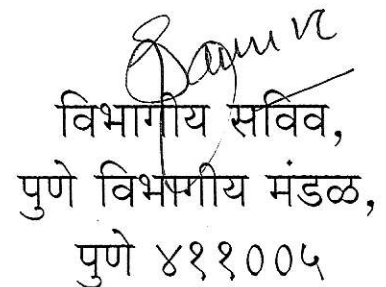 विभागीय सचिव,
पुणे विभागीय मंडळ,
पुणे ४११००५